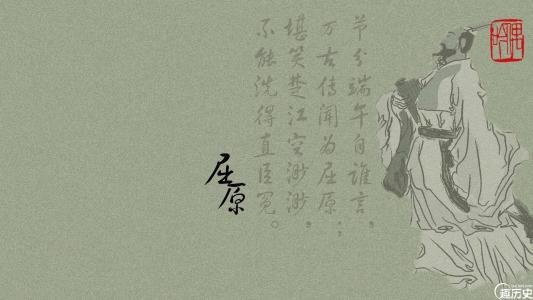 节分端午自谁言，
万古传闻为屈原；
堪笑楚江空渺渺，
不能洗得直臣冤。
屈原
趣历史